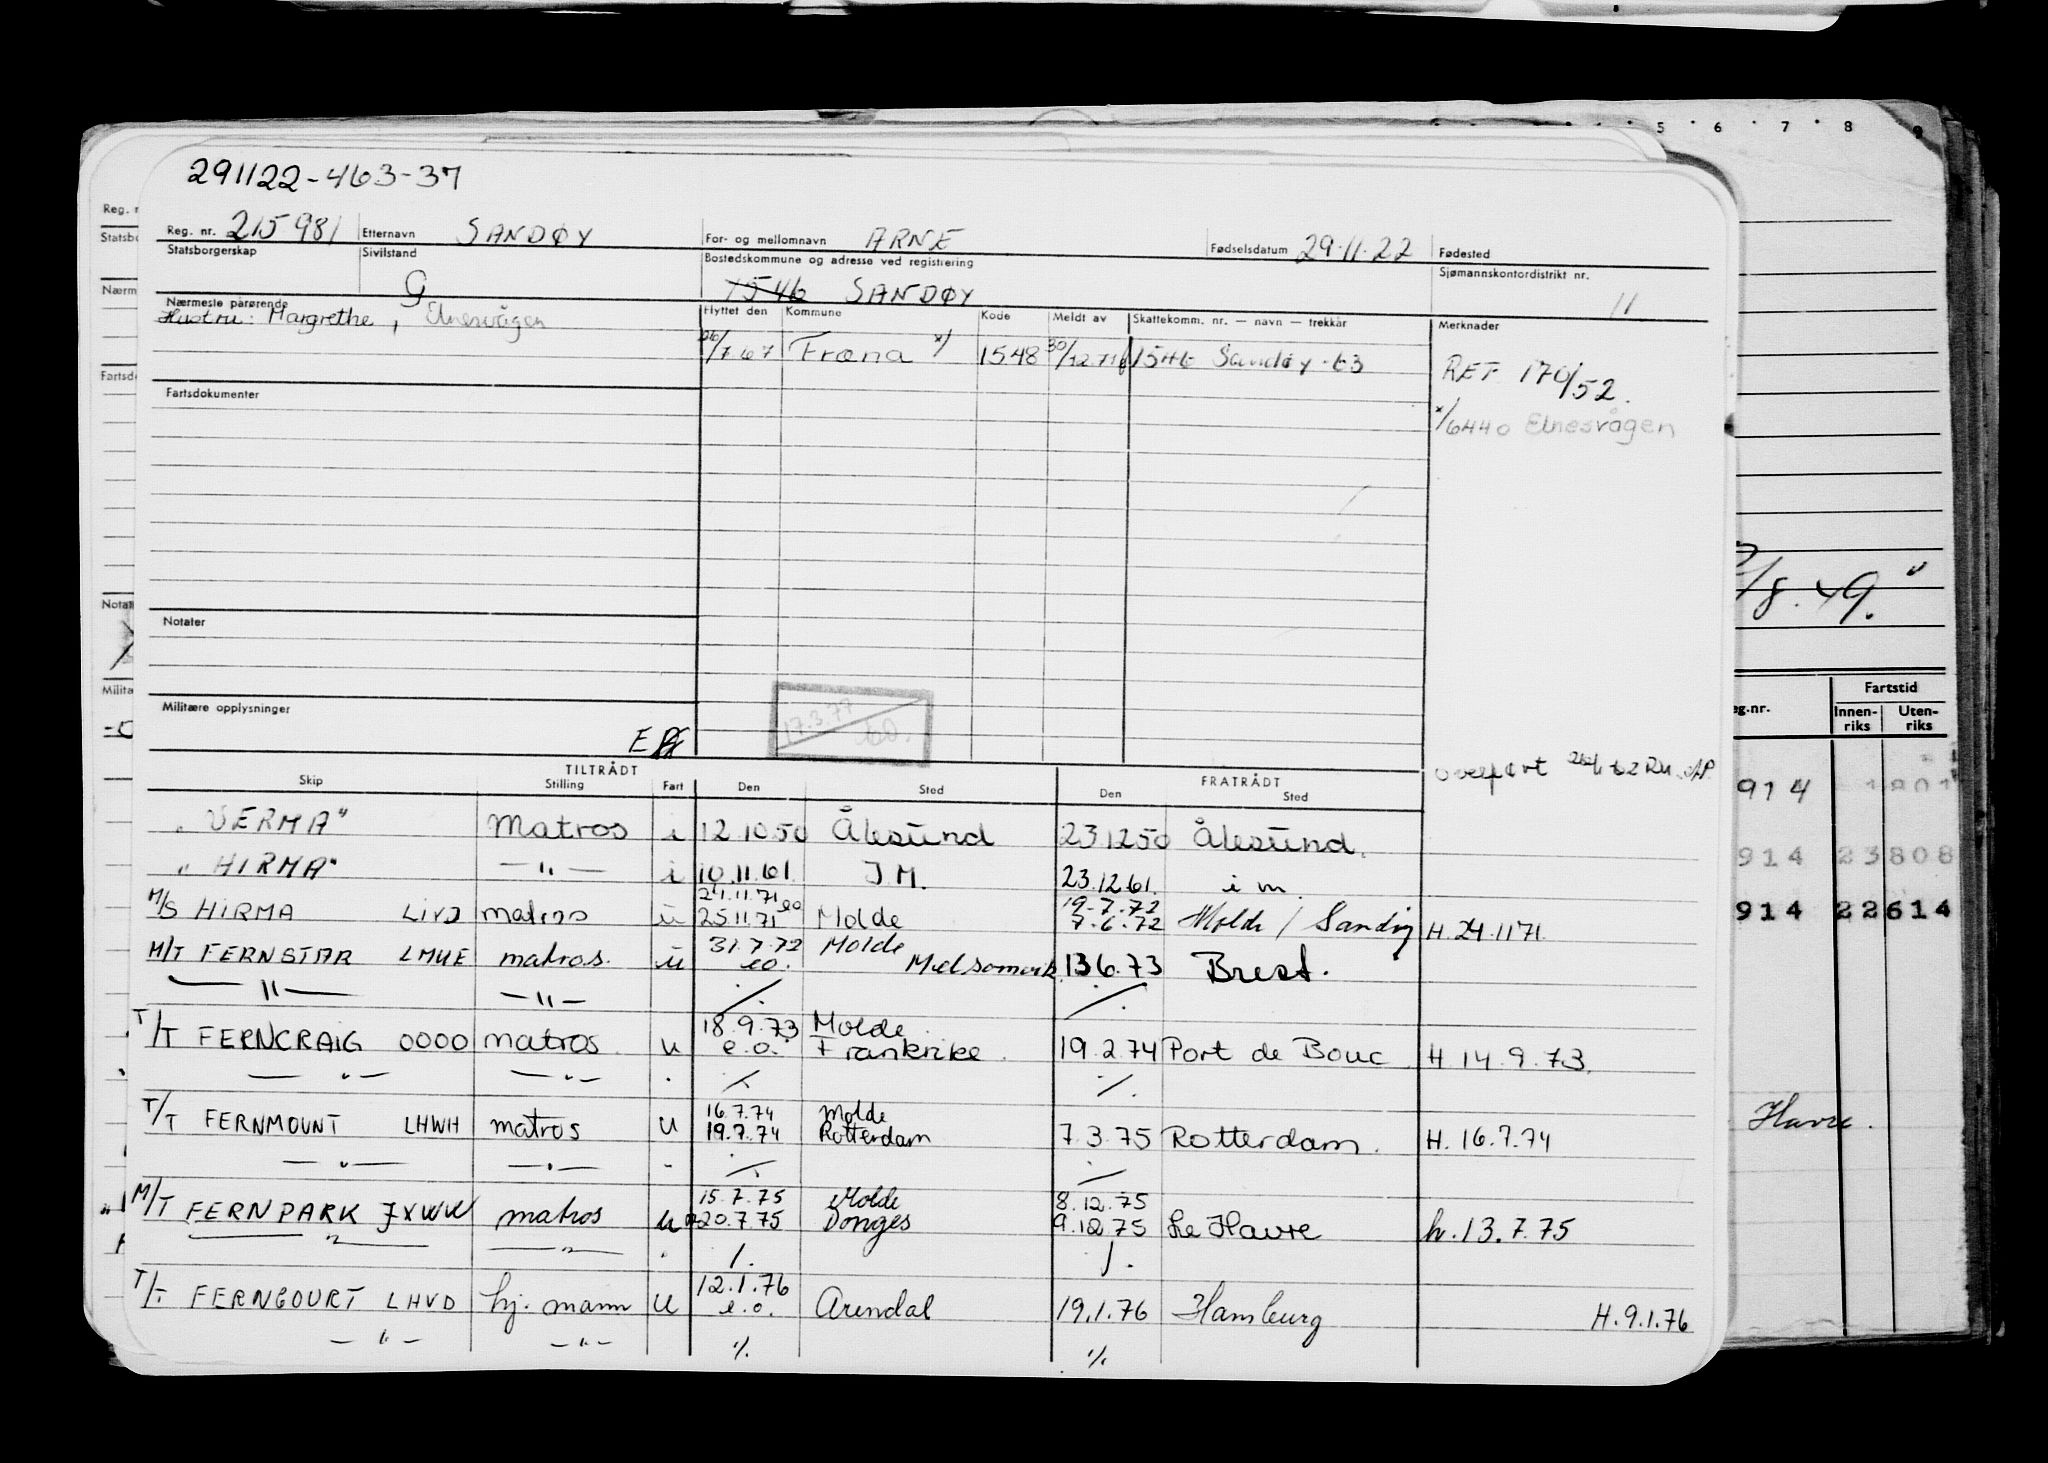 5 6 7 8 9
291122-463-37
Reg. nr. 215981 Etternavn SANDØY For- og mellomnavn ARNE Fødselsdatum 29.11.22 Fødested
Statsborgerskap Sivilstand G Bostedskommune og adresse ved registrering 1546 SANDØY Sjømannskontordistrikt nr. 11
Nærmeste pårørende Flyttet den Kommune Kode Meldt av Skattekomm. nr. — navn — trekkår Merknader
Hustru: Margrethe, Elnesvågen
/7.67 Fræna x/ 1548 30/12.71 1546 Sandøy - 63
REF 170/52.
x/6440 Elnesvågen
Fartsdokumenter
Notater
Militære opplysninger
17.3.77
TILTRÅDT FRATRÅDT
Skip Stilling Fart Den Sted Den Sted
"VERMA" Matros i 12.10.50 Ålesund 23.12.50 Ålesund.
"HIRMA" —"— i 10.11.61. I.M. 23.12.61. i m
24.11.71 19.7.72
M/S HIRMA matros u 25.11.71 Molde 7.6.72 Molde / H. 24.11.71.
31.7.72 Molde
M/T FERNSTAR LMUE matros. u e.o. 13.6.73 Brest.
—"— —"— ./. ./.
18.9.73 Molde
T/T FERNCRAIG 0000 matros. u e.o. Frankrike. 19.2.74 Port de Bouc H 14.9.73.
—"— —"— ./. ./.
16.7.74 Molde
T/T FERNMOUNT LHWH matros u 19.7.74 Rotterdam 7.3.75 Rotterdam. H. 16.7.74
—"— —"— ./. ./.
15.7.75 Molde 8.12.75
M/T FERNPARK JXWW matros u 20.7.75 Donges 9.12.75 Le Havre h. 13.7.75
—"— —"— ./. ./.
12.1.76
T/T FERNCOURT LHVD hj. mann u e.o. Arendal 19.1.76 Hamburg H. 9.1.76
—"— —"— ./. ./.
/8.49."
Fartstid
eg.nr. Innen-riks Uten-riks
914 1801
914 23808
914 22614
Havre.